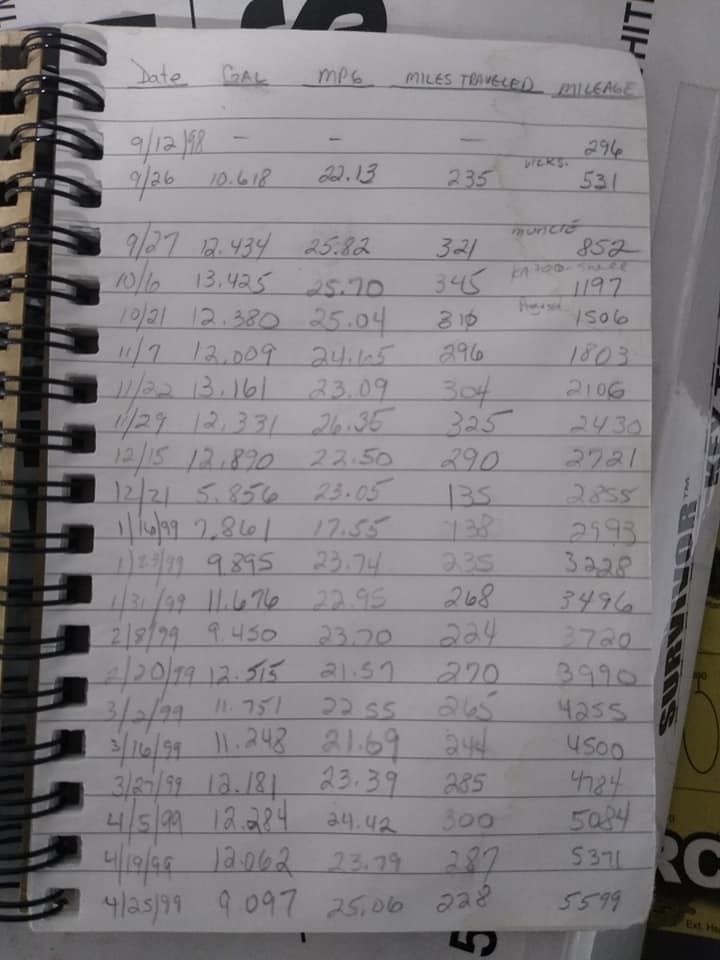 HIT
Date GAL MPG MILES TRAVELED MILEAGE
9/12/98 - - - 296
9/26 10.618 22.13 235 531
MUNCIE
9/27 12.434 25.82 321 852
10/6 13.425 25.70 345 1197
10/21 12.380 25.04 310 1506
11/7 12.009 24.65 296 1803
11/22 13.161 23.09 304 2106
11/29 12.331 26.35 325 2430
12/15 12.890 22.50 290 2721
12/21 5.856 23.05 135 2855
1/16/99 7.861 17.55 138 2993
1/23/99 9.895 23.74 235 3228
1/31/99 11.676 22.95 268 3496
2/8/99 9.450 23.70 224 3720
2/20/99 12.515 21.57 270 3990
3/2/99 11.751 22.55 265 4255
3/16/99 11.248 21.69 244 4500
3/27/99 12.181 23.39 285 4784
4/5/99 12.284 24.42 300 5084
4/19/99 12.062 23.79 287 5371
4/25/99 9.097 25.06 228 5599
SURVIVOR™
KEY
RC
5